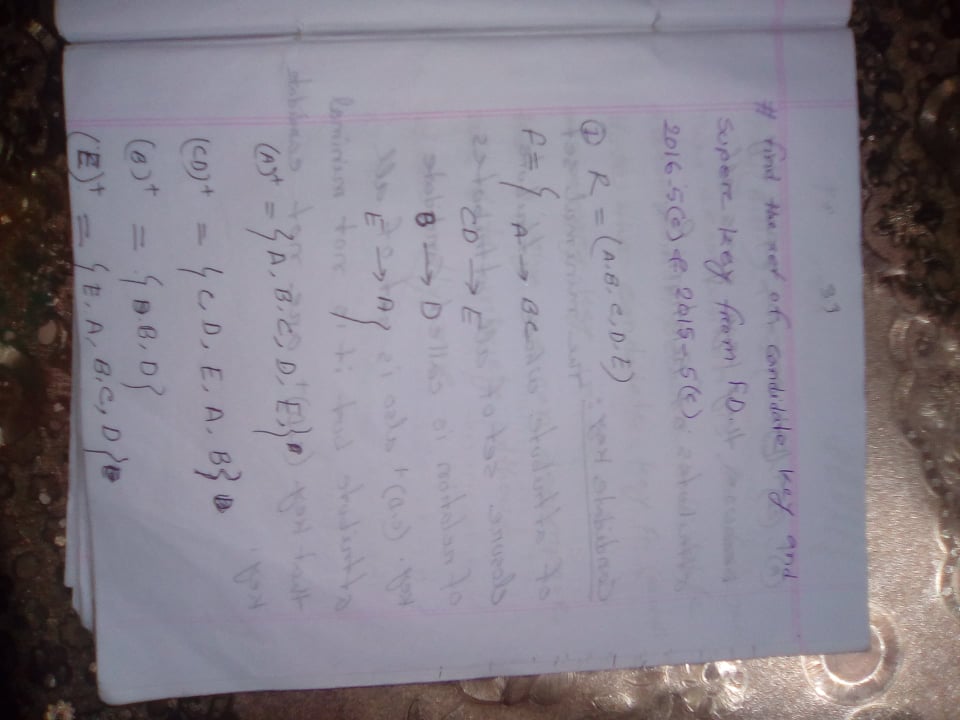 # find the set of candidate key and
supere key from F.D.
2016-5(c) & 2015-5(c)
① R = (A, B, C, D, E)
F = { A → BC
CD → E
B → D
E → A}
(A)⁺ = {A, B, C, D, E}
(CD)⁺ = {C, D, E, A, B}
(B)⁺ = {B, D}
(E)⁺ = {E, A, B, C, D}